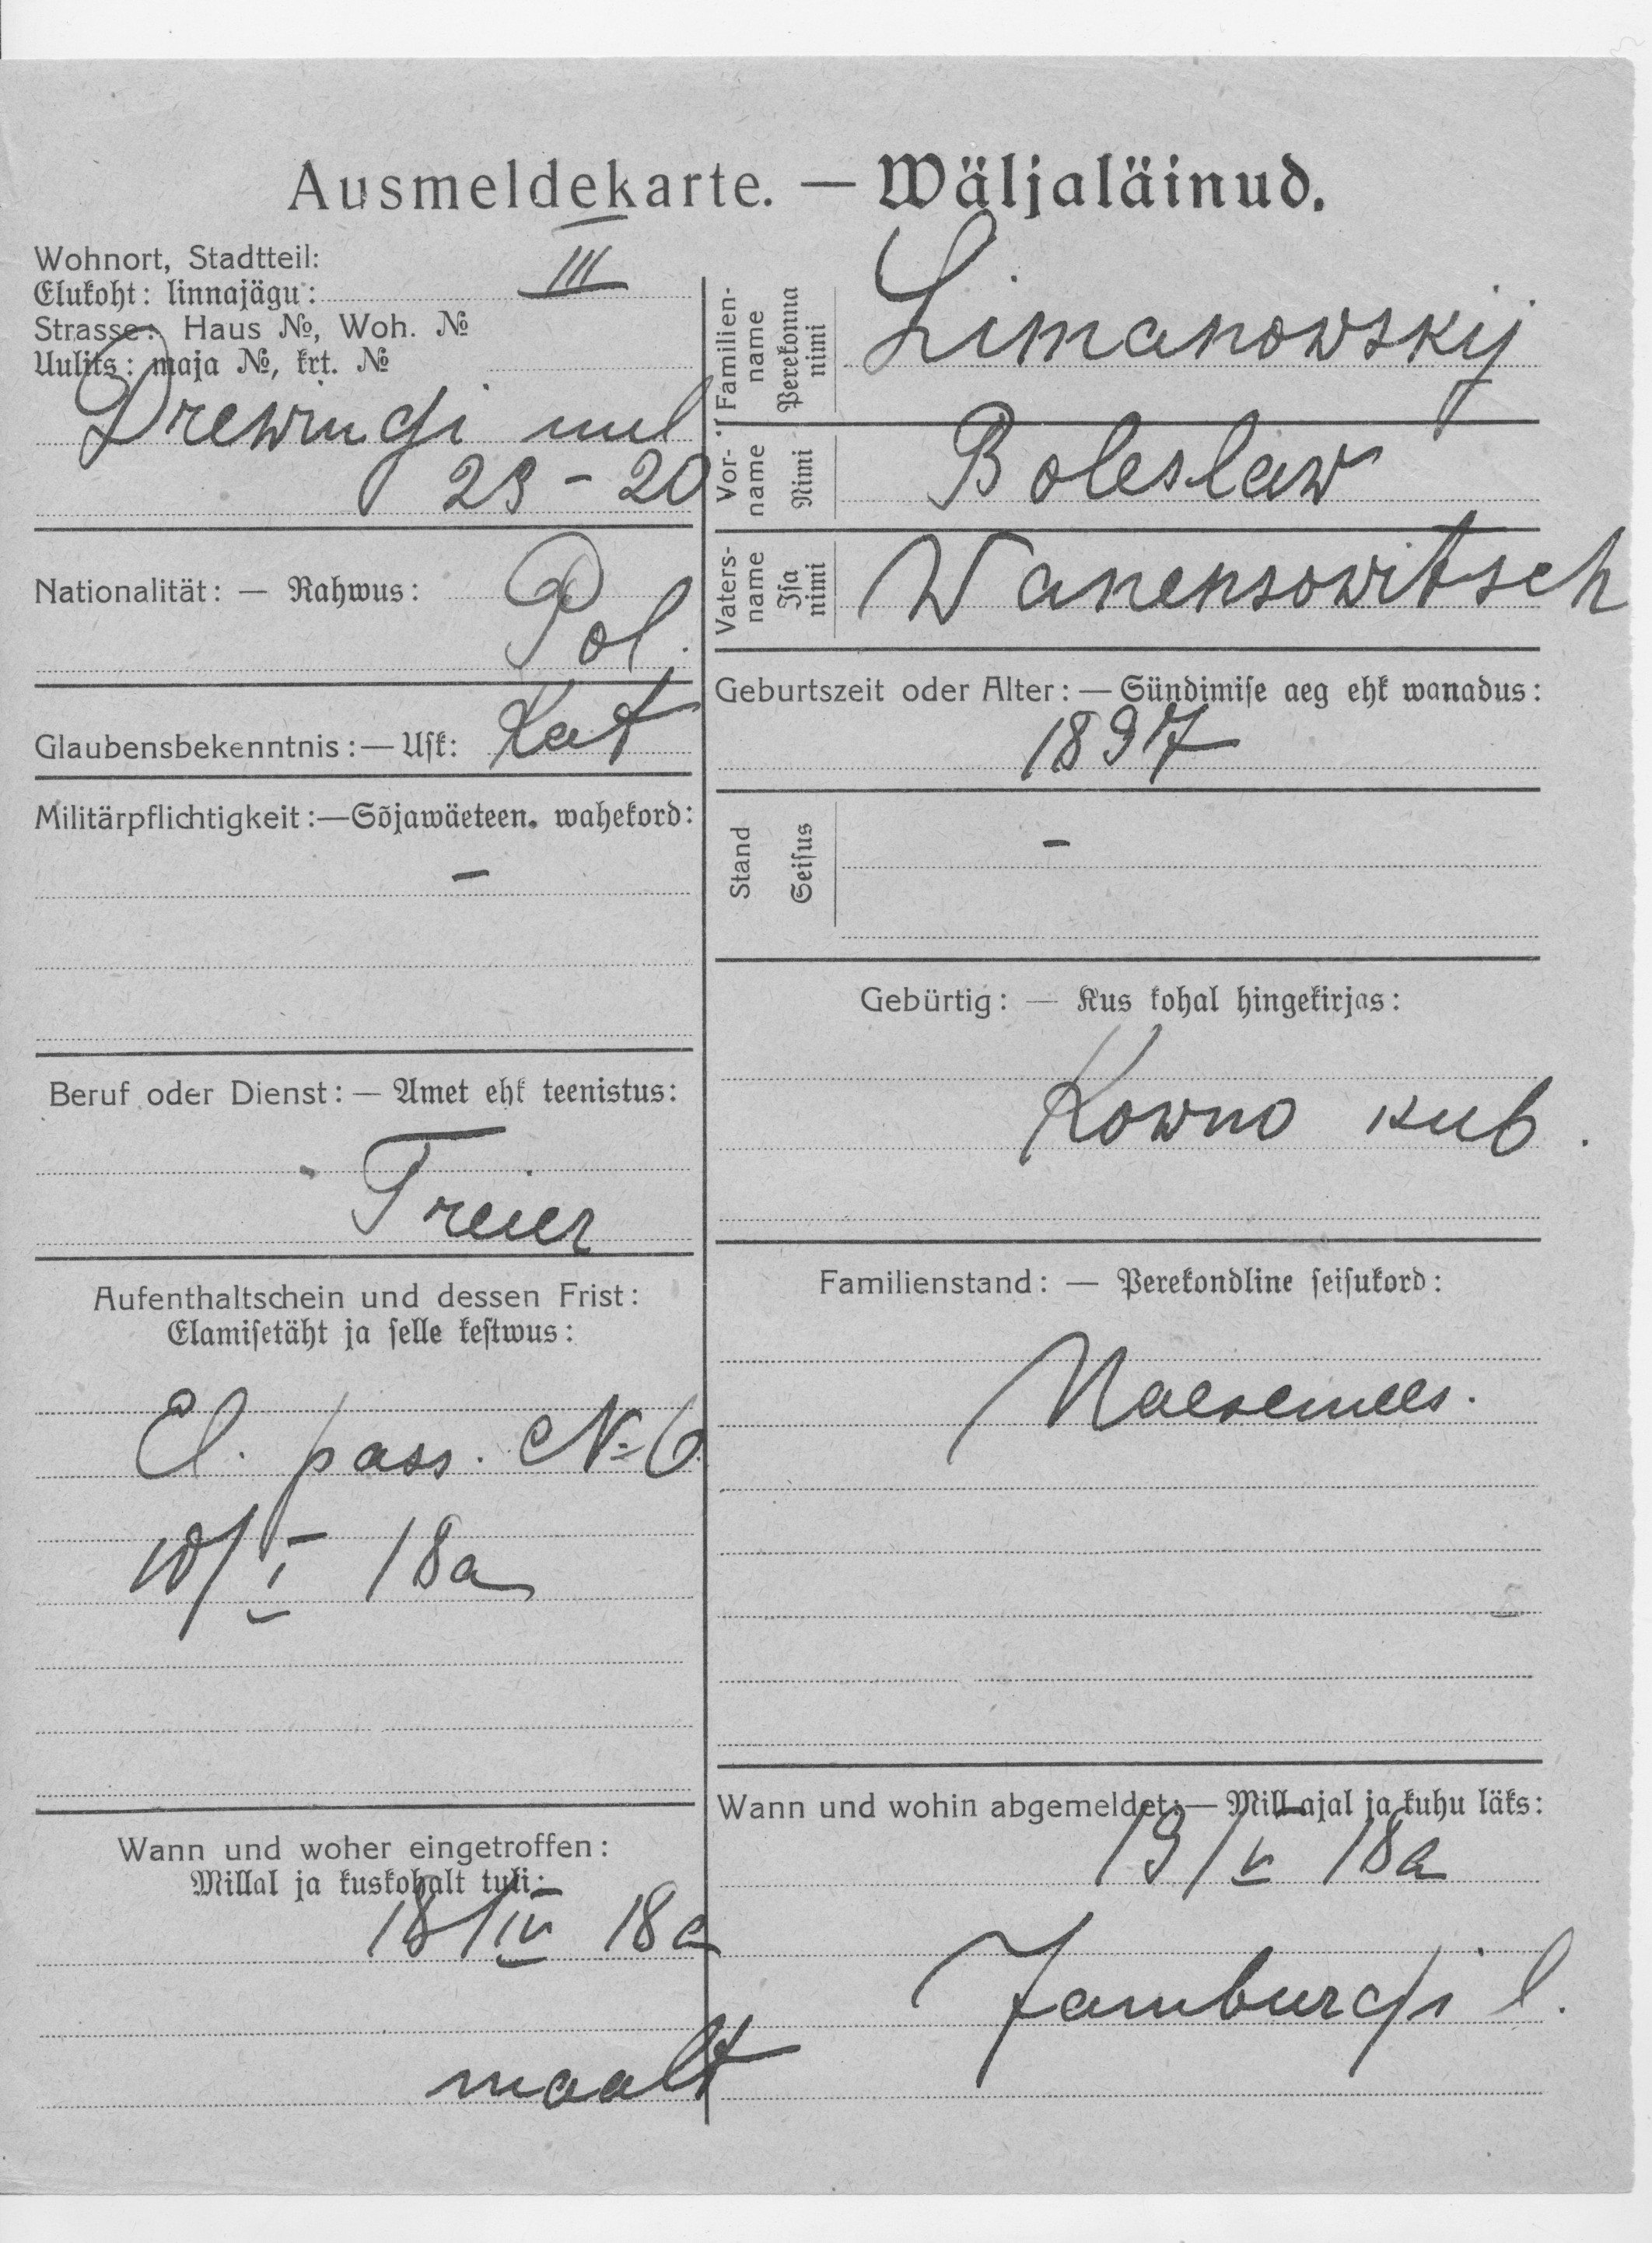 Ausmeldekarte. — Wäljaläinud.
Wohnort, Stadtteil:
Elukoht: linnajägu: III
Strasse: Haus №, Woh. №
Uulits: maja №, krt. №
uul
23 - 20
Nationalität: — Rahwus:
Pol.
Glaubensbekenntnis: — Usk: Kat
Militärpflichtigkeit: — Sõjawäeteen. wahekord:
-
Beruf oder Dienst: — Amet ehk teenistus:
Treier
Aufenthaltschein und dessen Frist:
Elamisetäht ja selle kestwus:
El. pass. № 6
10/I 18a
Wann und woher eingetroffen:
Millal ja kuskohalt tuli:
18/IV 18a
maalt
Familien-name Perekonna nimi Limanowskij
Vor-name Nimi Boleslaw
Vaters-name Isa nimi Wanensowitsch
Geburtszeit oder Alter: — Sündimise aeg ehk wanadus:
1897
Stand Seisus -
Gebürtig: — Kus kohal hingekirjas:
Kowno kub.
Familienstand: — Perekondline seisukord:
Naesemees.
Wann und wohin abgemeldet: — Mill ajal ja kuhu läks:
19/V 18a
Jamburgi l.